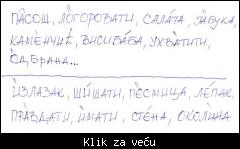 ПАСОШ, ЛОГОРОВАТИ, САЛАТА, ЈАБУКА,
КАМЕНЧИЋ, ВИСИБАБА, УХВАТИТИ,
ОДБРАНА...
ИЗЛАЗАК, ШИШАТИ, ПЕСМИЦА, ЛЕПАК,
ПРАВДАТИ, ИМАТИ, СТЕНА, ОКОЛИНА
Klik za veću